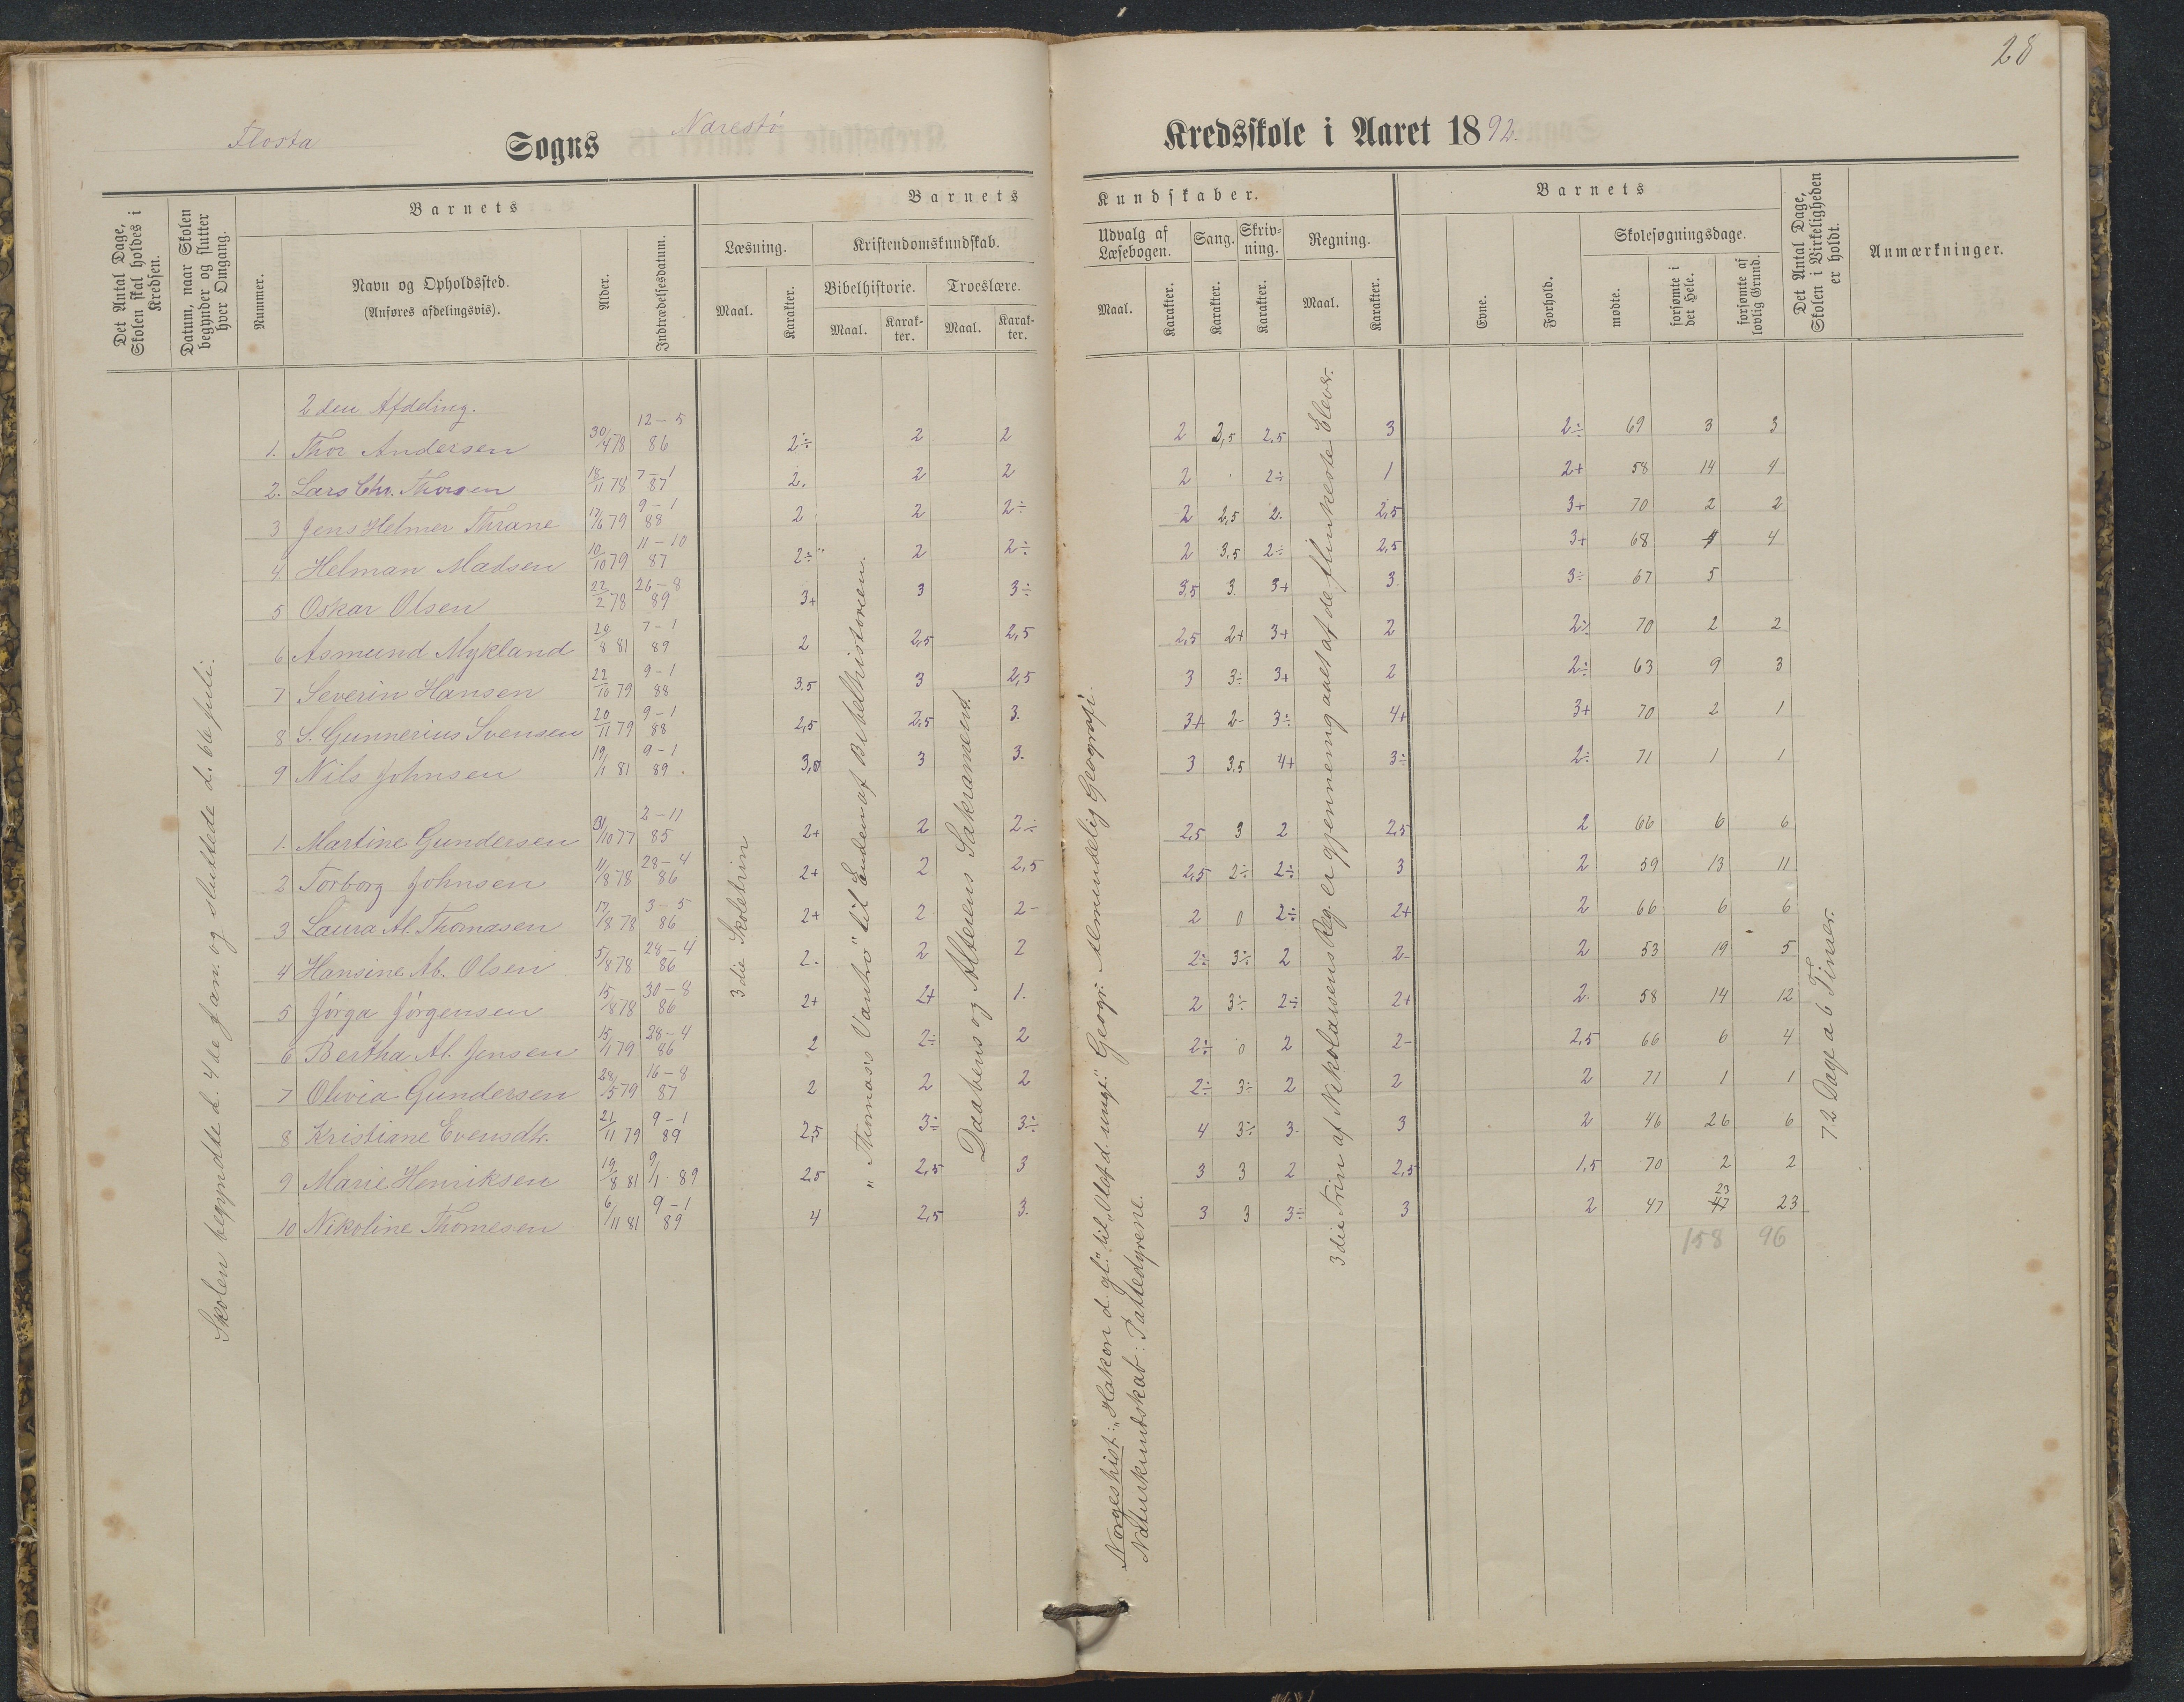 28
Flosta Sogns Narestø Kredsskole i Aaret 1892.
Det Antal Dage, Skolen skal holdes i Kredsen.
Datum, naar Skolen begynder og slutter hver Omgang.
Barnets
Nummer.
Navn og Opholdssted.
(Anføres afdelingsvis).
Alder.
Indtrædelsesdatum.
Barnets Kundskaber.
Læsning.
Maal. Karakter.
Kristendomskundskab.
Bibelhistorie. Troeslære.
Maal. Karakter. Maal. Karakter.
Udvalg af Læsebogen.
Maal. Karakter.
Sang.
Karakter.
Skrivning.
Karakter.
Regning.
Maal. Karakter.
Barnets
Evne.
Forhold.
Skolesøgningsdage.
mødte.
forsømte i det Hele.
forsømte af lovlig Grund.
Det Antal Dage, Skolen i Virkeligheden er holdt.
Anmærkninger.
Skolen begyndte d. 4de Jan. og sluttede d. 6te juli.
3die Skoletrin
"Thomas's Vantro" til Enden af Bibelhistorien.
Daabens og Alterens Sakrament.
Norges hist: "Hakon d. gl." til "Olaf d. unge". Geogr: Almindelig Geografi.
Naturkundskab: Pattedyrene.
3die Trin af Nikolaisens Reg. er gjennemgaaet af de flinkeste Elever.
72 Dage a 6 Timer.
2den Afdeling.
1. Thor Andersen 30/4 78 12-5 86 2÷ 2 2 2 2,5 2,5 3 2÷ 69 3 3
2. Lars Chr. Thorsen 18/11 78 7-1 87 2. 2 2 2 2÷ 1 2+ 58 14 4
3 Jens Helmer Thrane 17/6 79 9-1 88 2 2 2÷ 2 2,5 2. 2,5 3+ 70 2 2
4. Helman Madsen 10/10 79 11-10 87 2÷ 2 2÷ 2 3,5 2÷ 2,5 3+ 68 4 4
5 Oskar Olsen 22/2 78 26-8 89 3+ 3 3÷ 3,5 3 3+ 3 3÷ 67 5
6 Asmund Mykland 20/8 81 7-1 89 2 2,5 2,5 2,5 2+ 3+ 2 2÷ 70 2 2
7 Severin Hansen 22/10 79 9-1 88 3.5 3 2,5 3 3÷ 3+ 2 2÷ 63 9 3
8 S. Gunnerius Svensen 20/11 79 9-1 88 2,5 2,5 3. 3+ 2- 3÷ 4+ 3+ 70 2 1
9 Nils Johnsen 19/1 81 9-1 89. 3,5 3 3. 3 3,5 4+ 3÷ 2÷ 71 1 1
1. Martine Gundersen 31/10 77 2-11 85 2+ 2 2÷ 2,5 3 2 2,5 2 66 6 6
2 Torborg Johnsen 11/8 78 28-4 86 2+ 2 2,5 2,5 2÷ 2÷ 3 2 59 13 11
3 Laura Al. Thomasen 17/8 78 3-5 86 2+ 2 2- 2 0 2÷ 2+ 2 66 6 6
4 Hansine Ab. Olsen 5/8 78 28-4 86 2. 2 2 2÷ 3÷ 2 2- 2 53 19 5
5 Jórga Jórgensen 15/8 78 30-8 86 2+ 2+ 1. 2 3÷ 2÷ 2+ 2. 58 14 12
6 Bertha Al. Jensen 15/1 79 28-4 86 2 2÷ 2 2÷ 0 2 2- 2,5 66 6 4
7 Olivia Gundersen 28/5 79 16-8 87 2 2 2 2÷ 3÷ 2 2 2 71 1 1
8 Kristiane Evensdtr. 21/11 79 9-1 89 2,5 3÷ 3÷ 4 3÷ 3- 3 2 46 26 6
9 Marie Henriksen 19/8 81 9/1 89 2,5 2,5 3 3 3 2 2,5 1,5 70 2 2
10 Nikoline Thomesen 6/11 81 9-1 89 4 2,5 3. 3 3 3÷ 3 2 47 23 23
158 96